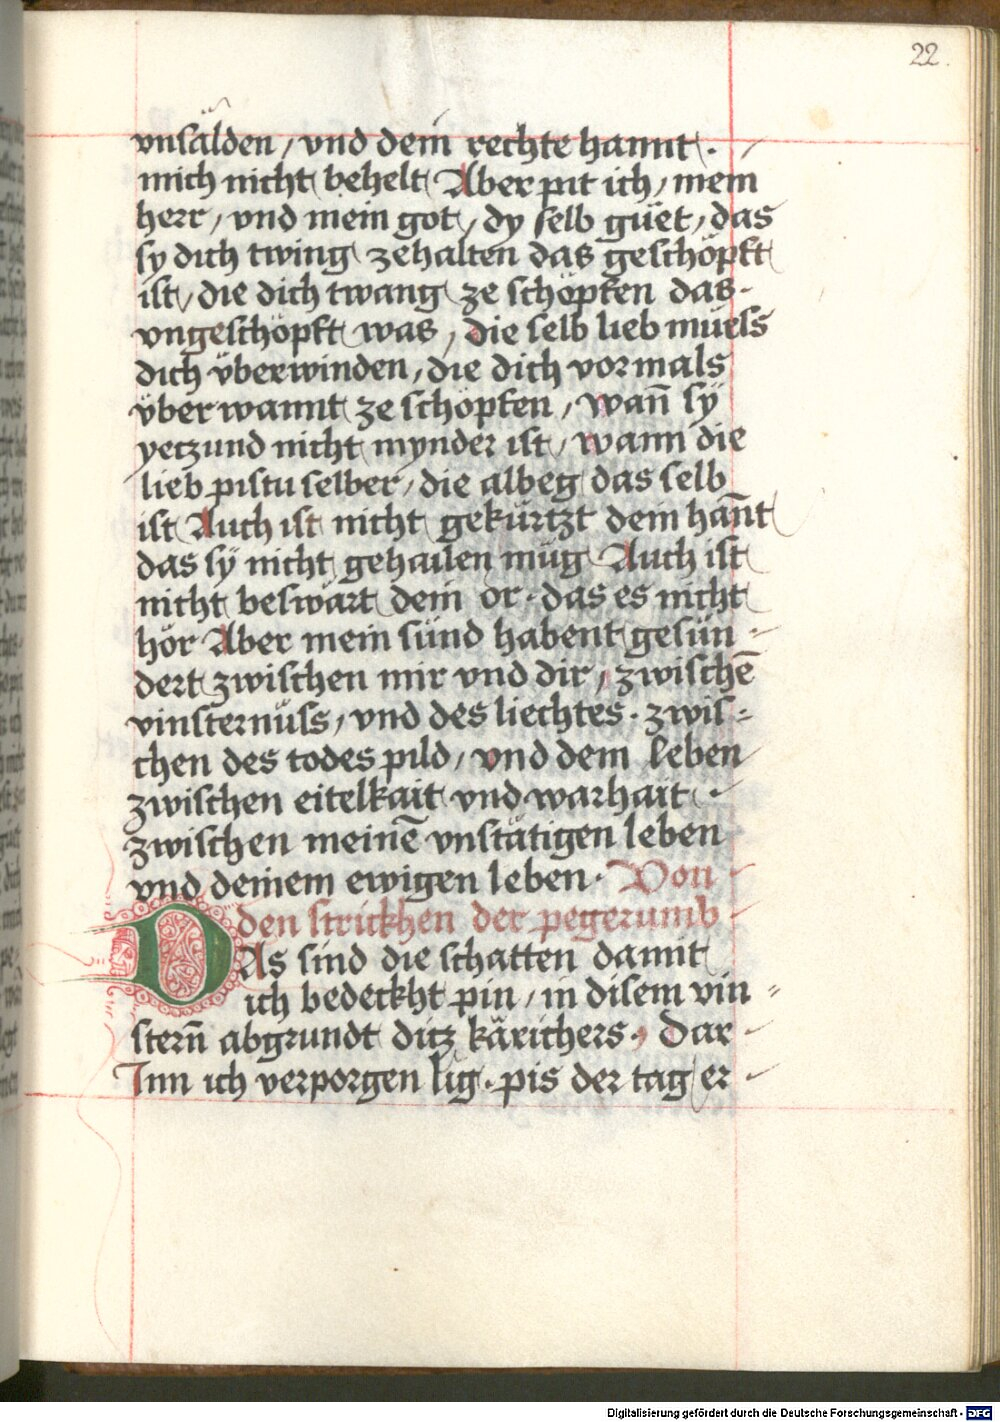 22.
vnsälden / vnd dein rechte hannt.
mich nicht behelt Aber pit ich / mein
herr / vnd mein got / dy selb güet / das
sy dich twing zehalten das geschöpft
ist / die dich twang ze schöpfen das-
vngeschöpft was / die selb lieb muess
dich überwinden / die dich vormals
überwannt ze schöpfen / wañ sÿ
yetzund nicht mynder ist / wann die
lieb pistu selber / die albeg das selb
ist Auch ist nicht gekürtzt dein hañt
das sÿ nicht gehailen müg Auch ist
nicht beswärt dein or - das es nicht
hör Aber mein sünd habent gesün-
dert zwischen mir vnd dir / zwischē
vinsternüss / vnd des liechtes. zwis-
chen des todes pild / vnd dem leben
zwischen eitelkait vnd warhait.
zwischen meinē vnstätigen leben
vnd deinem ewigen leben. Von
den strickhen der pegerumb
DAs sind die schatten damit
ich bedeckht pin / in disem vin-
sterñ abgrundt ditz kärichers. Dar-
Inn ich verporgen lig. pis der tag er-
Digitalisierung gefördert durch die Deutsche Forschungsgemeinschaft - DFG